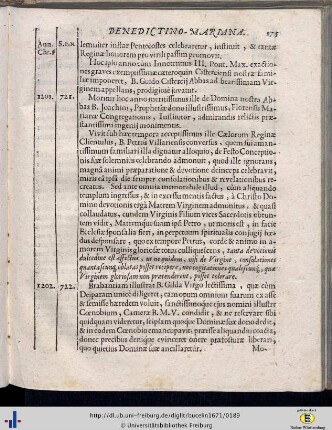 BENEDICTINO-MARIANA. 175
Ann. Chr. S.D.N.
lemniter instar Pentecostes celebraretur, instituit, & tantæ
Reginæ honorem pro virili passim promovit.
Hoc ipso anno cum Innocentius III. Pont. Max. exactio-
nes graves exemptissimæ cæteroquin Cisterciensi nostræ fami-
liæ imponeret, B. Guido Cistercii Abbas ad beatissimam Vir-
ginem appellans, prodigiosè juvatur.
1201. 721. Moritur hoc anno meritissimus ille de Domina nostra Ab-
bas B. Joachim, Propheta ille illustrissimus, Florensis Ma-
rianæ Congregationis, Institutor, admirandis relictis præ-
stantissimi ingenij monumentis.
Vivit sub hæc tempora acceptissimus ille Cælorum Reginæ
Clientulus, B. Petrus Villariensis conversus, quem suı aman-
tissimum familiari illa dignatur alloquio, de Festo Conceptio-
nis suæ solemniùs celebrando admonuit, quod ille ignorans,
magnâ animi præparatione & devotione deinceps celebravit,
miris ea ipsa die semper consolationibus & revelationibus re-
creatus. Sed ante omnia memorabile illud, cùm aliquando
templum ingressus, & in excessu mentis factus, à Christo Do-
mino devotionis ergà Matrem Virginem admonitus, & quasi
collaudatus, eundem Virginis Filium vices Sacerdotis obeun-
tem vidit, Matremque suam ipsi Petro, ut moris est, in facie
Ecclesiæ sponsalia fieri, in perpetuum spiritualis conjugij fœ-
dus desponsare, quo ex tempore Petrus, corde & animo in a-
morem Virginis gloriosæ totus colliquescens, tanta devotionis
dulcedine est affectus, ut ne quidem, nisi de Virgine, consolationes
quantascunq, oblatas posset recipere, nec cogitationes qualescunq, quæ
Virginem gloriosam non prætenderent, posset tolerare.
1202. 722. Brabantiam illustrat B. Gilda Virgo lectissima, quæ cùm
Deiparam unicè diligeret, eam quoque omnium suarum ex asse
& semisse hæredem voluit, sanctissimoque ejus nomini illustre
Cœnobium, Camera B. M. V. condidit, & ne reservare sibi
quidquam videretur, seipsam quoque Dominæ suæ dono dedit,
& in eodem Cœnobio emancipavit, præesse aliquamdiu coacta,
donec precibus denique evincens onere præfecturæ liberari,
quo quietius Dominæ suæ ancillaretur.
Mo-
http://dl.ub.uni-freiburg.de/diglit/bucelin1671/0189
© Universitätsbibliothek Freiburg